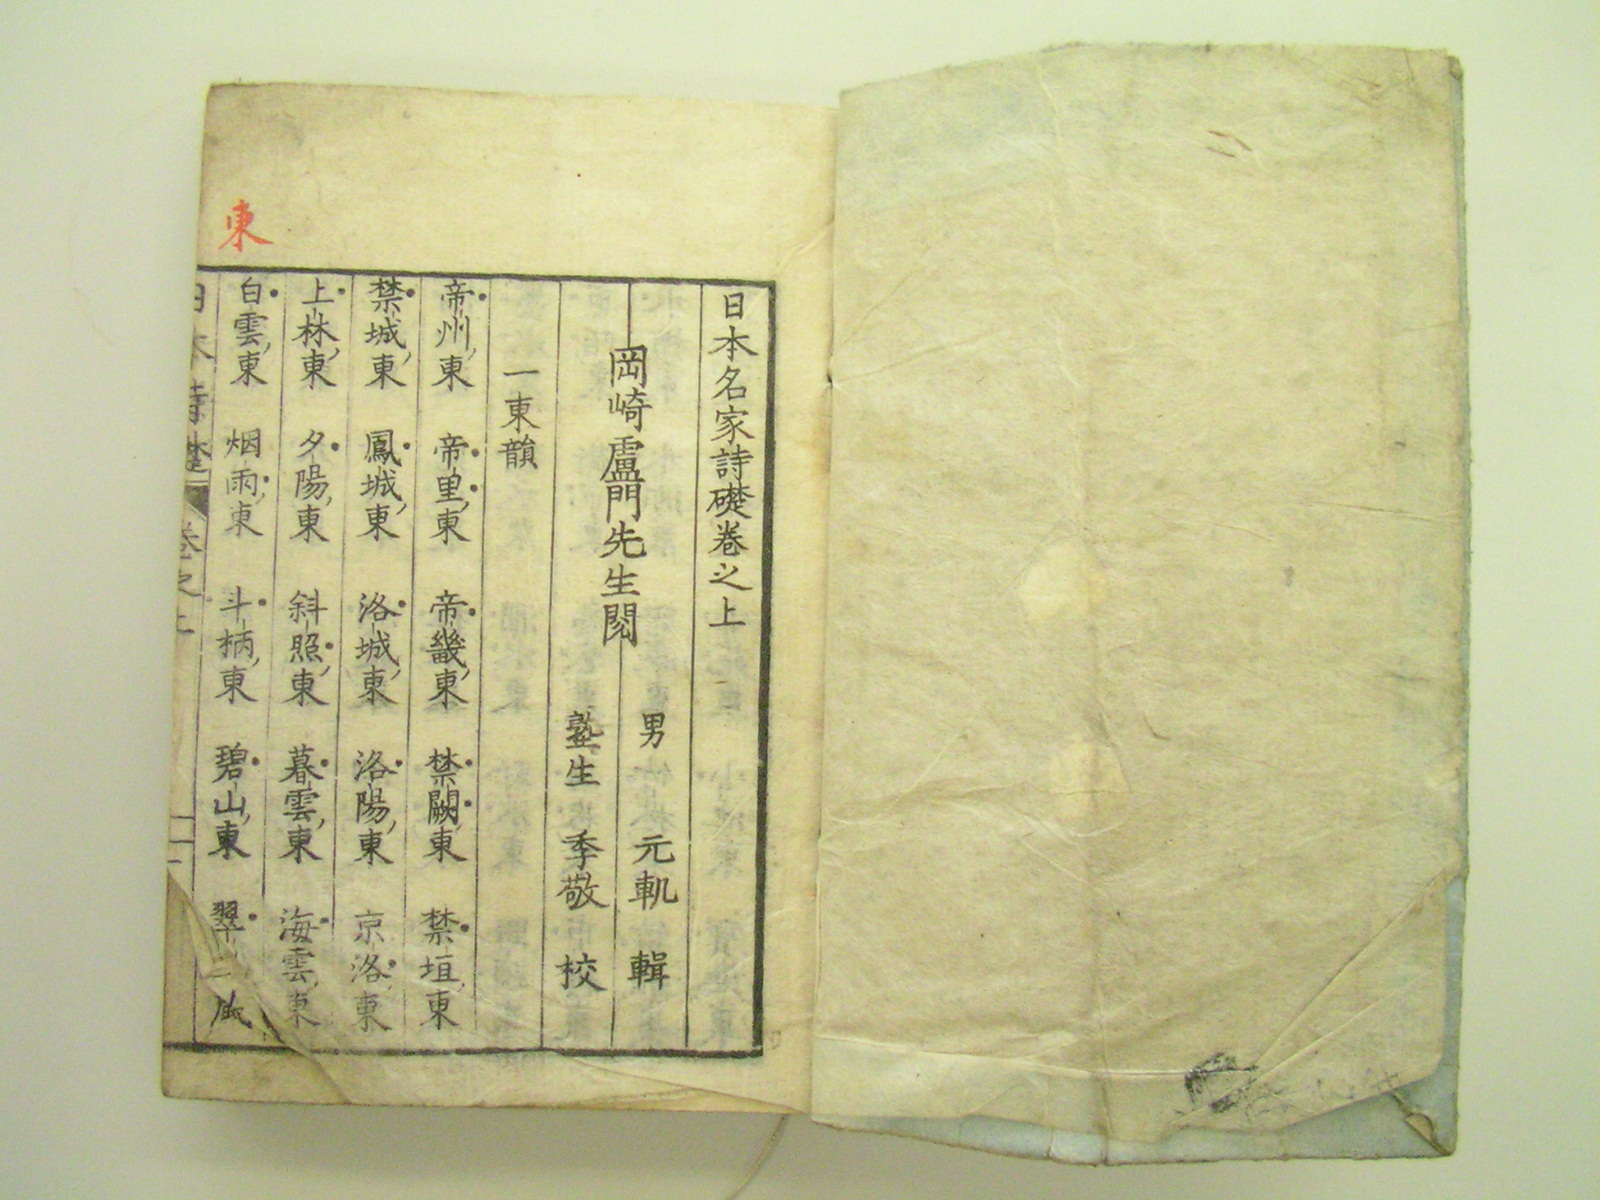 日本名家詩礎巻之上
岡崎盧門先生閲
男 元軌 輯
塾生 季敬 校
一東韻
帝州東 帝里東 帝畿東 禁闕東 禁垣東
禁城東 鳳城東 洛城東 洛陽東 京洛東
上林東 夕陽東 斜照東 暮雲東 海雲東
白雲東 烟雨東 斗柄東 碧山東 翠
東
日本詩礎 巻之上